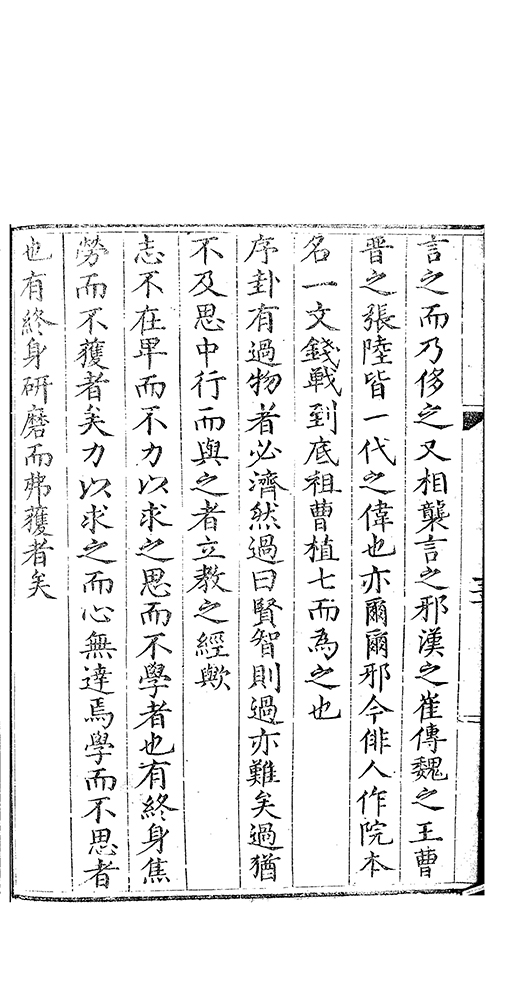 言之而乃侈之又相襲言之邪漢之崔傳魏之王曹
晋之張陸皆一代之偉也亦爾爾邪今俳人作院本
名一文錢戰到底祖曹植七而為之也
序卦有過物者必濟然過曰賢智則過亦難矣過猶
不及思中行而與之者立教之經歟
志不在卑而不力以求之思而不學者也有終身焦
勞而不獲者矣力以求之而心無達焉學而不思者
也有終身研磨而弗獲者矣